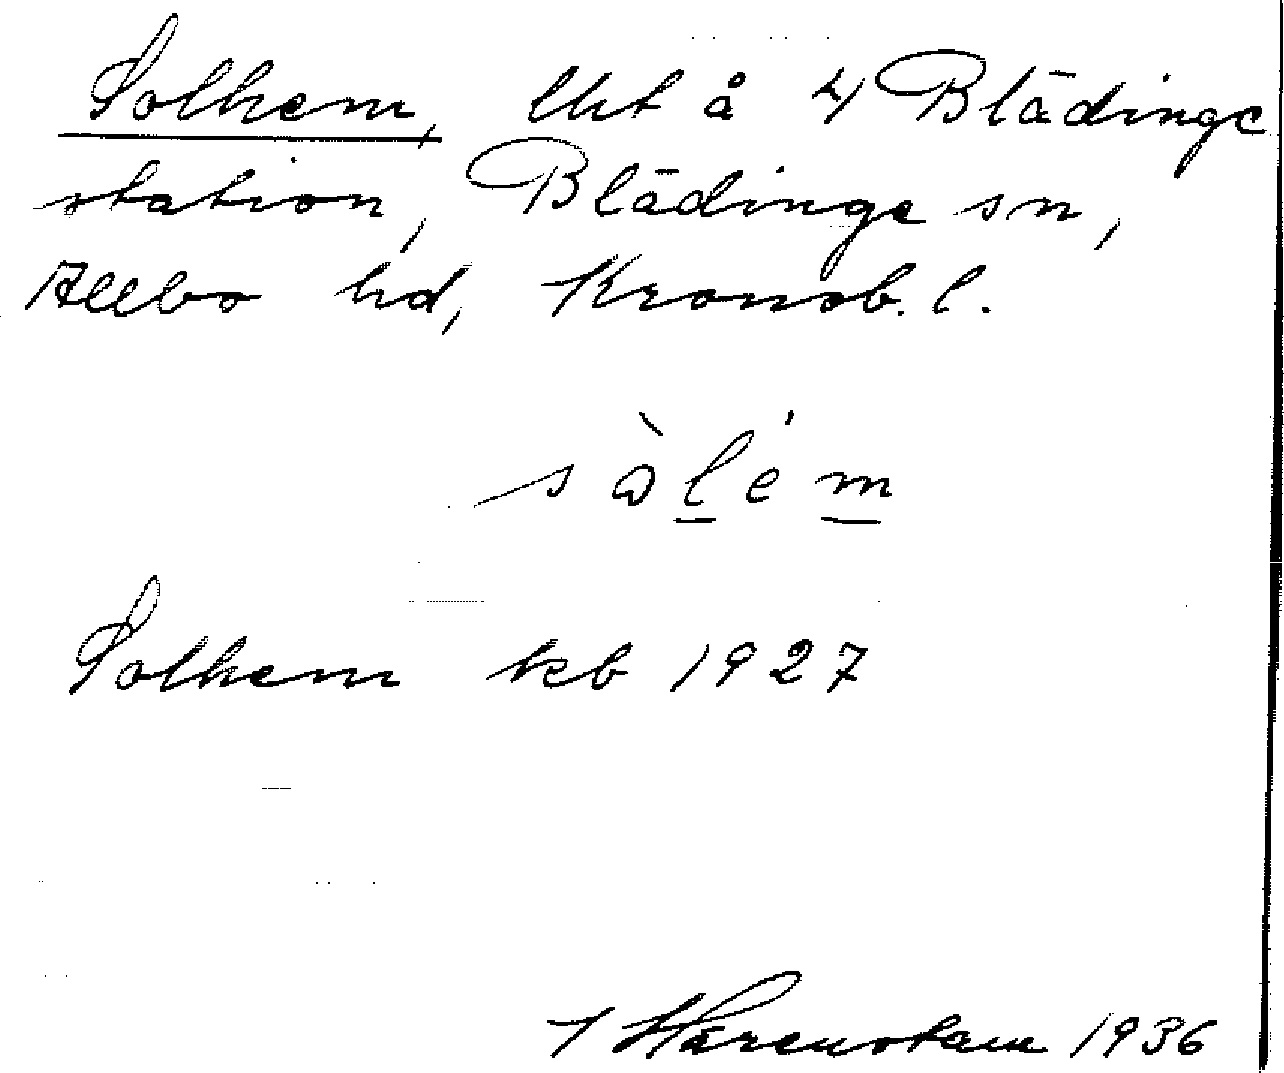 Solhem, lht å 4/ Blädinge
station, Blädinge sn,
Allbo hd, Kronob. l.
sòlém
Solhem kb 1927
Härenstam 1936